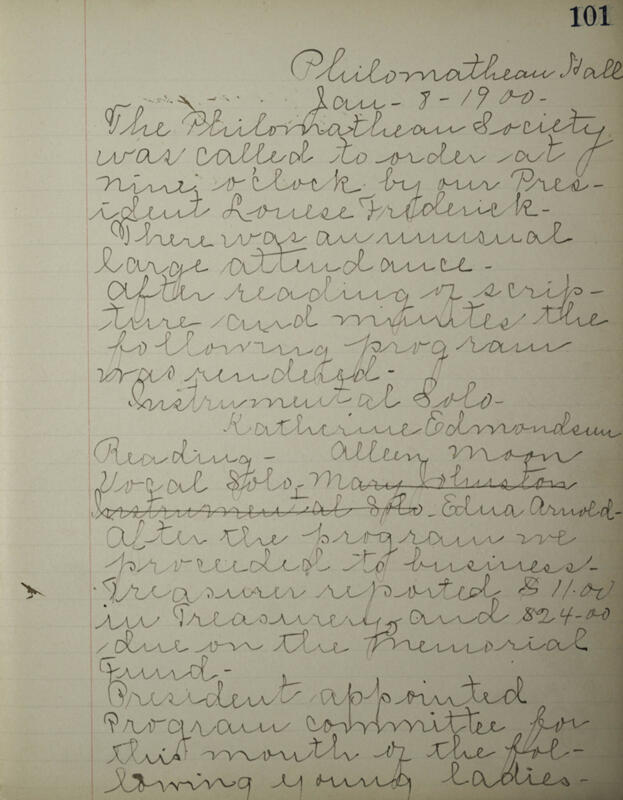 101
Philomathean Hall
Jan - 8 - 1900 -
The Philomathean Society
was called to order at
nine o'clock by our Pres-
ident Louese Frederick -
There was an unusual
large attendance -
After reading of scrip-
ture and minutes the
following program
was rendered -
Instrumental Solo -
Katherine Edmondson
Reading - Alleen Moon
Vocal Solo - Mary Johnston
Instrumental Solo - Edna Arnold -
After the program we
proceeded to business -
Treasurer reported $11.00
in Treasurery, and $24-00
due on the Memorial
Fund -
President appointed
Program committee for
this month of the fol-
lowing young ladies -